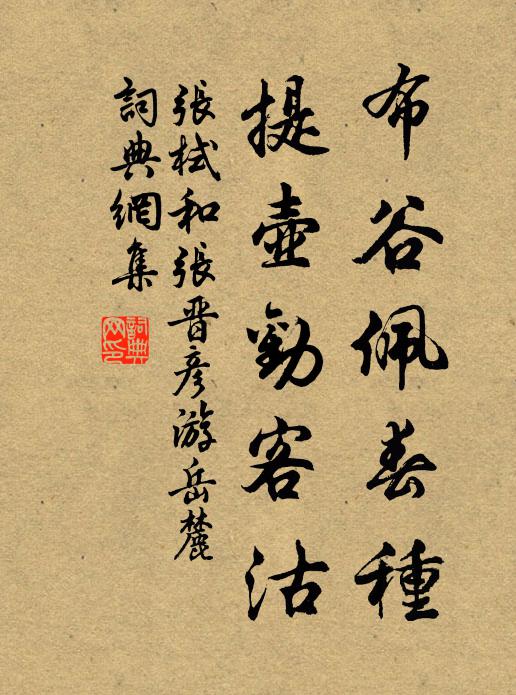 布谷佩春種
提壺勸客沽
張栻和張晋彦游岳麓
詞典網集
詞典网印